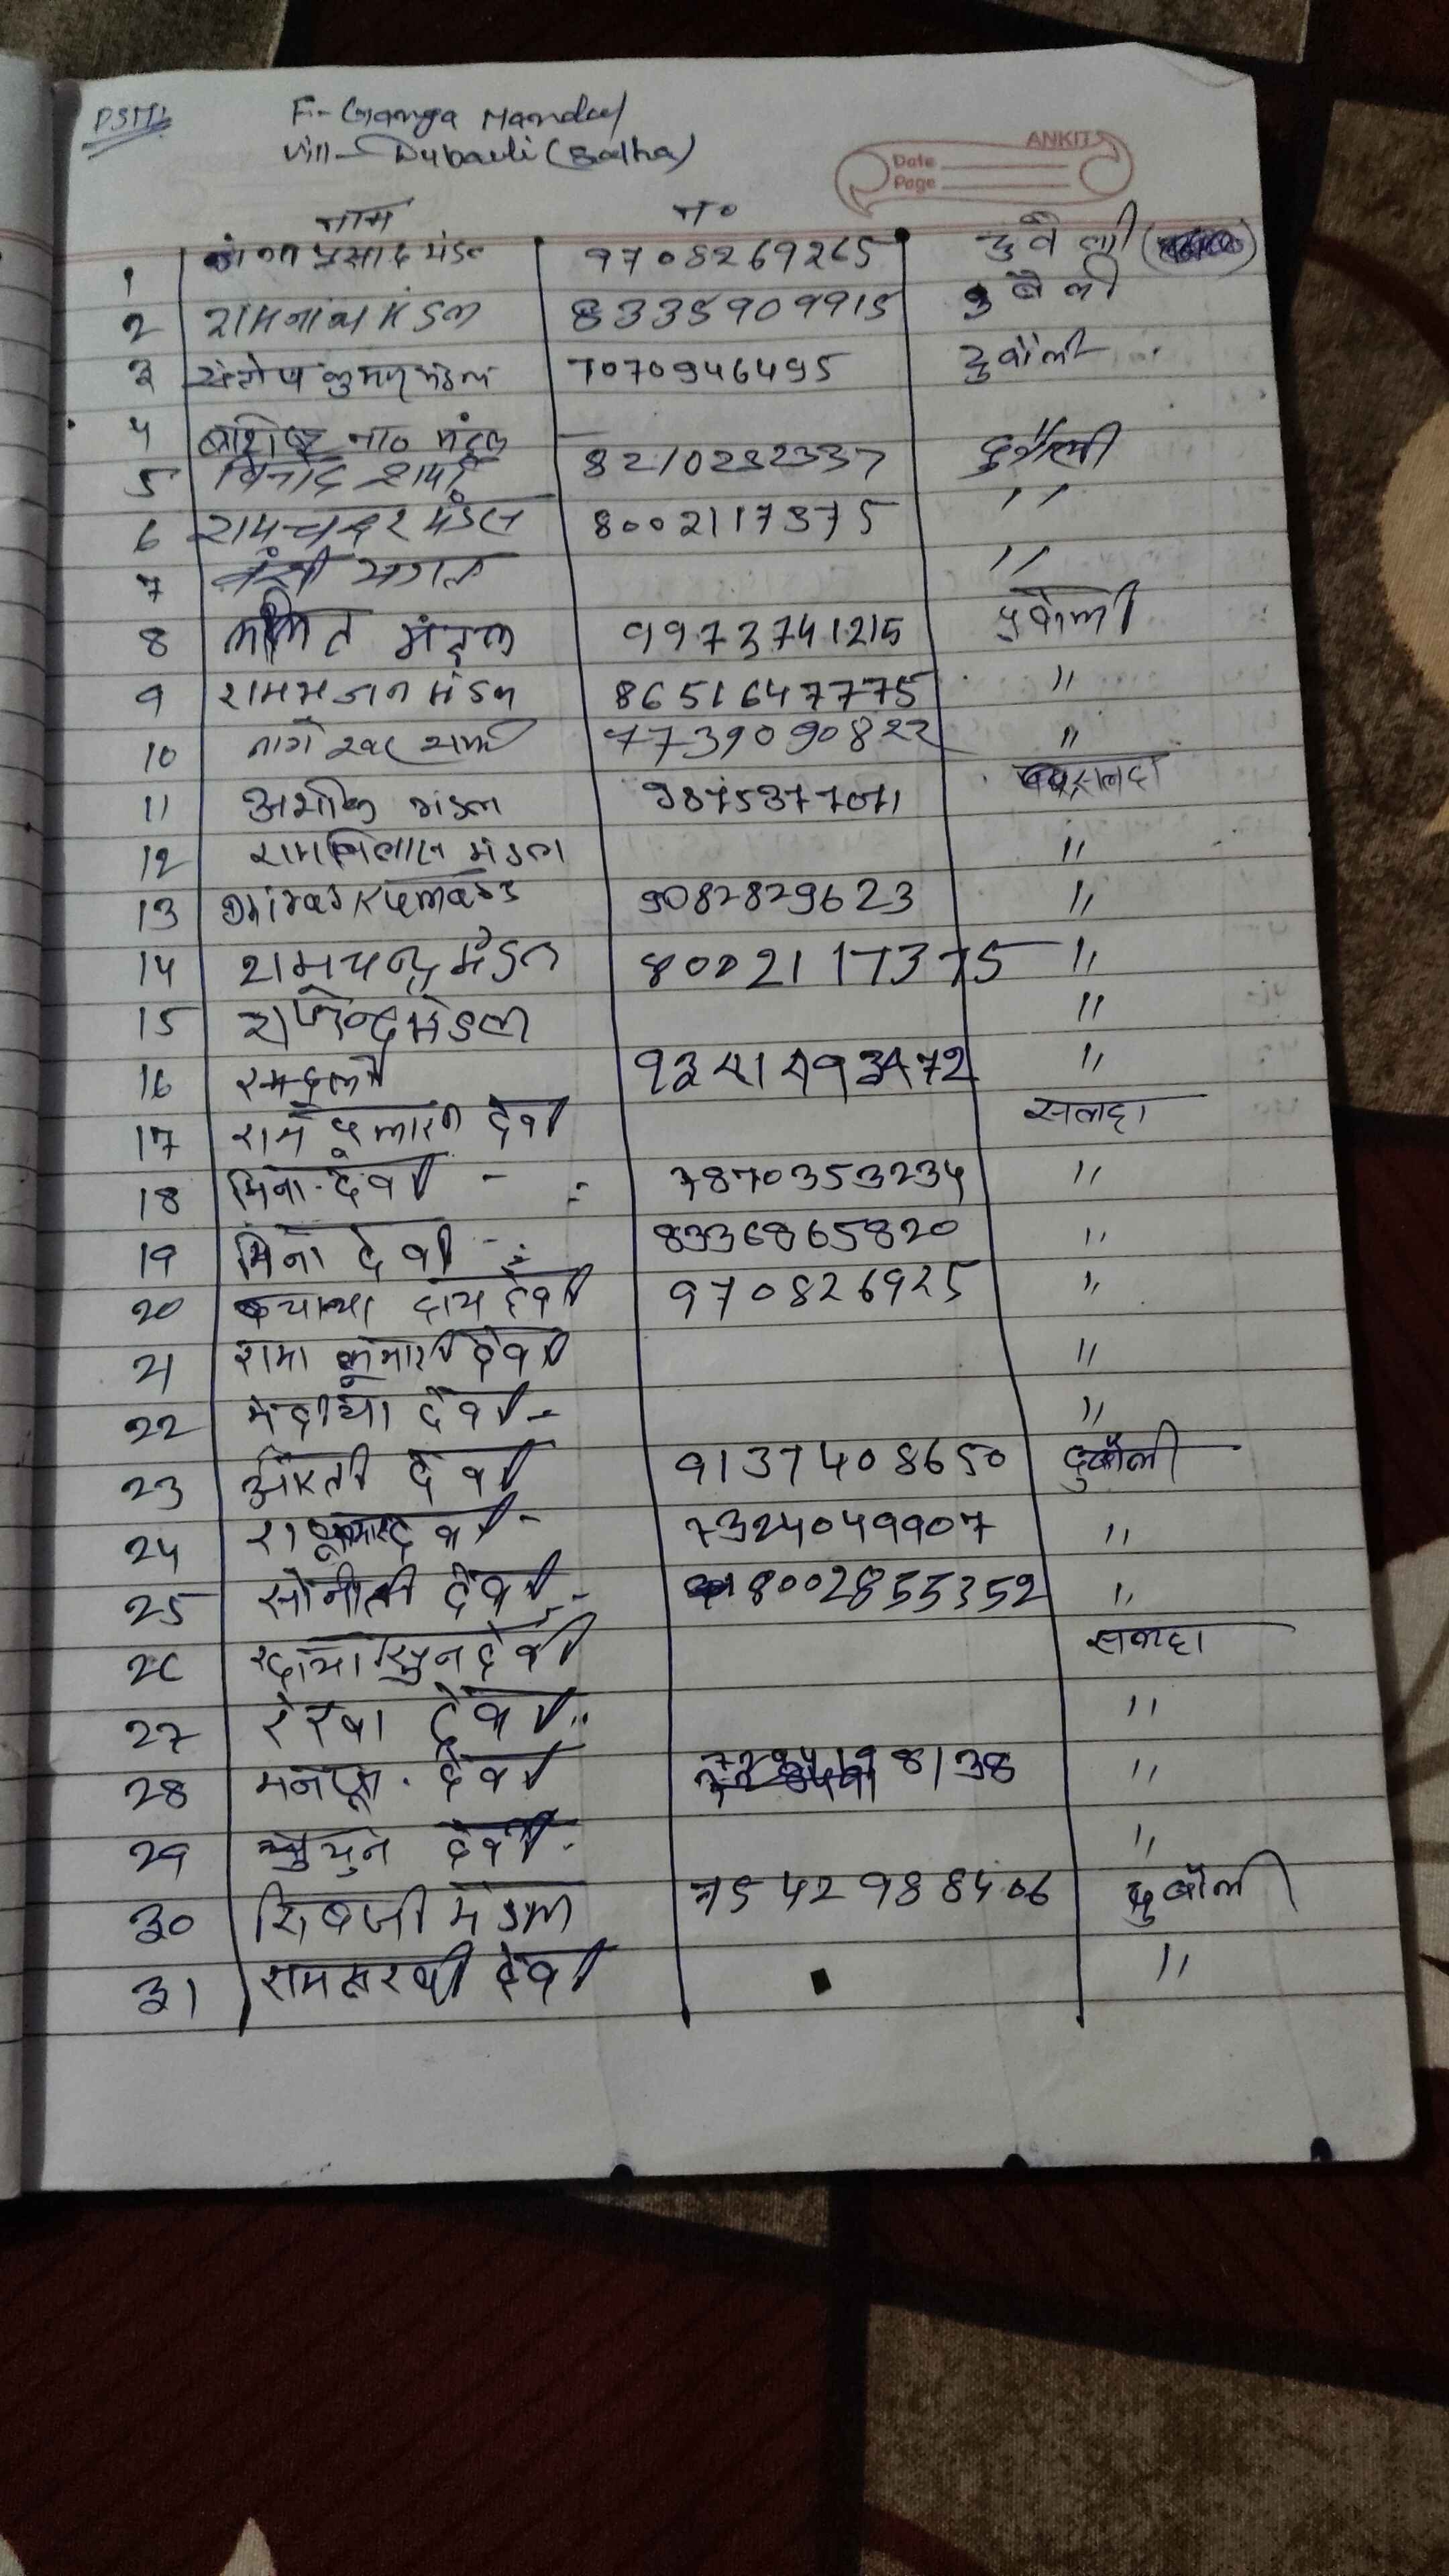 F- Ganga Mandal
Vill- Dubauli (Salha)
ANKIT
Date
Page
नाम नo
1 प्रसाद मंडल 9708269265
2 रामनाथ मंडल 8335909915
3 संतोष कुमार मंडल 7070946495 दुबौली
4 नाथ मंडल
5 विनोद शर्मा 8210232337 दुबौली
6 रामचन्दर मंडल 8002117375 "
7 "
8 ललित मंडल 9973741215 दुबौली
9 रामभजन मंडल 8651647775 "
10 नागेश्वर शर्मा 7739090822 "
11 अशोक मंडल 9875377071 सलहा
12 रामविलास मंडल "
13 Dhiraj Kumar 9082829623 "
14 रामचन्द्र मंडल 8002117375 "
15 राजेन्द्र मंडल "
16 "
17 राम दुलारी देवी सलहा
18 मिना देवी - 7870353234 "
19 मिना देवी - 8336865820 "
20 देवी 970826925 "
21 रामा कुमारी देवी "
22 देवी - "
23 आरती देवी 9137408650 दुबौली
24 देवी - 7324049907 "
25 देवी - 8002855352 "
26 देवी सलहा
27 रेखा देवी "
28 देवी 8138 "
29 देवी - "
30 सिबजी मंडल 7542988406 दुबौली
31 देवी "